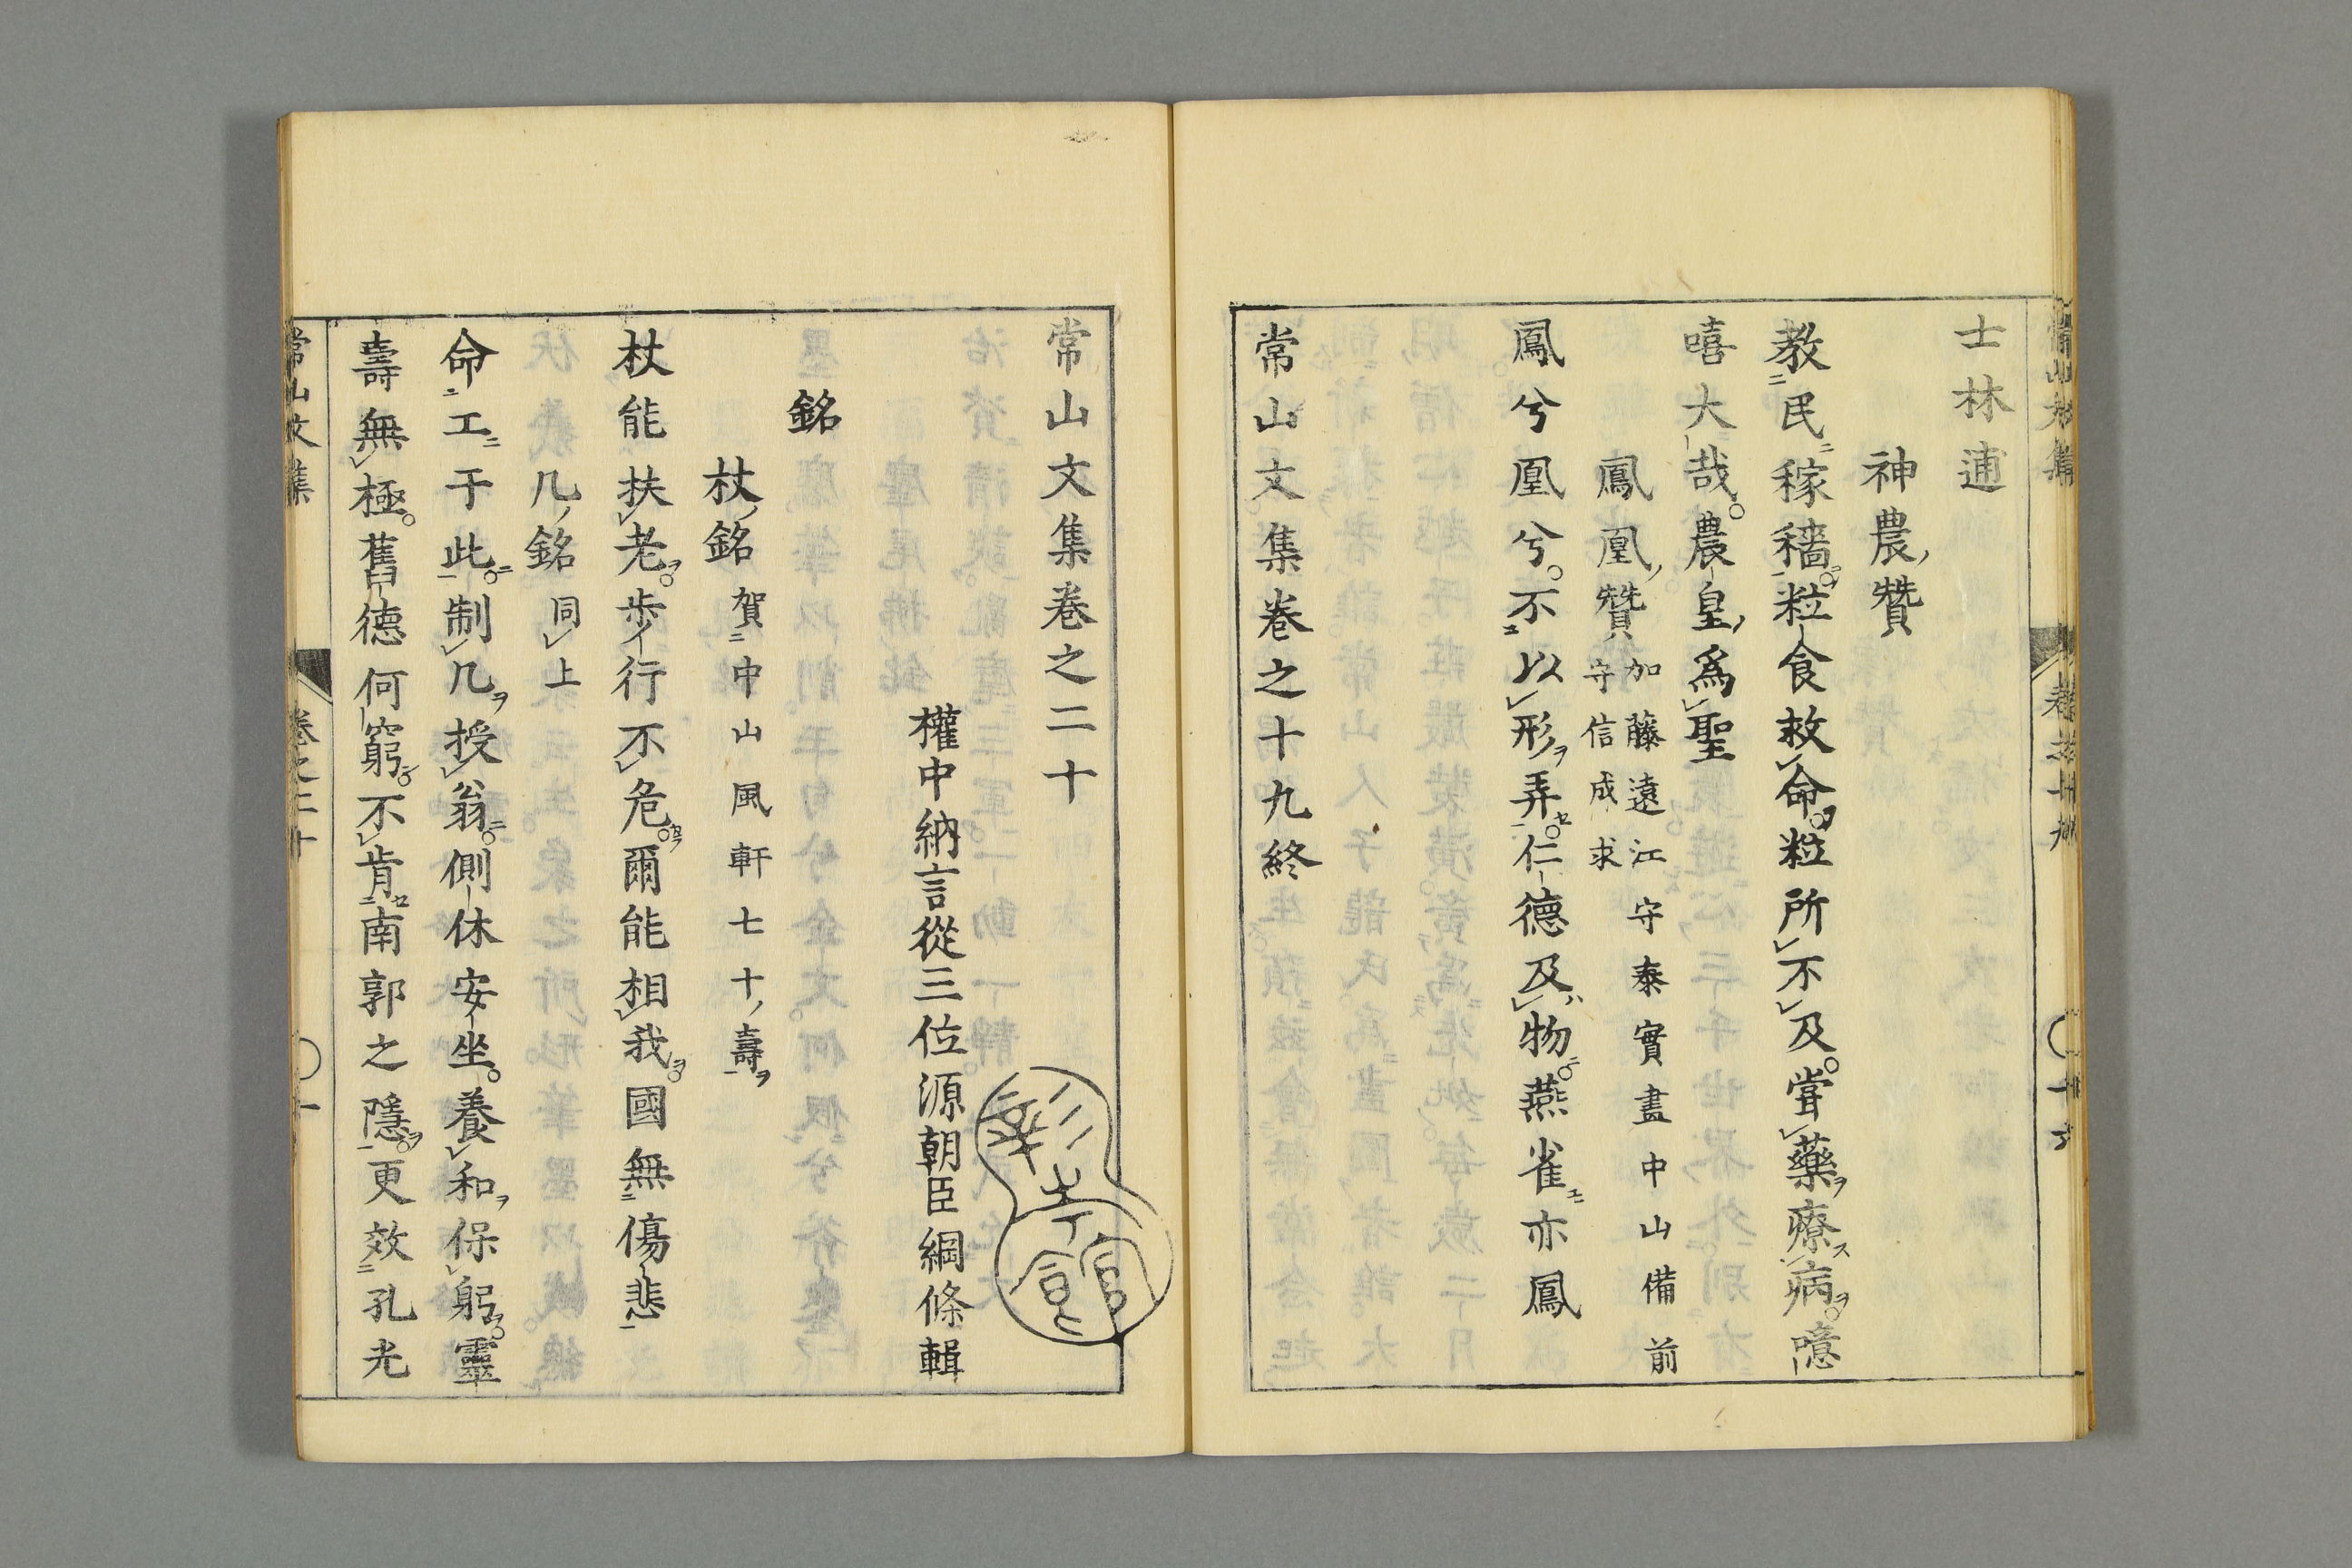 士林逋
神農贊
教民稼穡粒食救命粒所不及甞藥療病噫
嘻大哉農皇爲聖
鳳凰贊 加藤遠江守泰實畫中山備前
守信成求
鳳兮凰兮不以形弄仁德及物燕雀亦鳳
常山文集卷之十九終
常山文集卷之二十
權中納言從三位源朝臣綱條輯
銘
杖銘 賀中山風軒七十壽
杖能扶老步行不危爾能相我國無傷悲
几銘 同上
命工于此制几授翁側休安坐養和保躬靈
壽無極舊德何窮不肯南郭之隱更效孔光
常山文集 卷之二十 一
彰考館